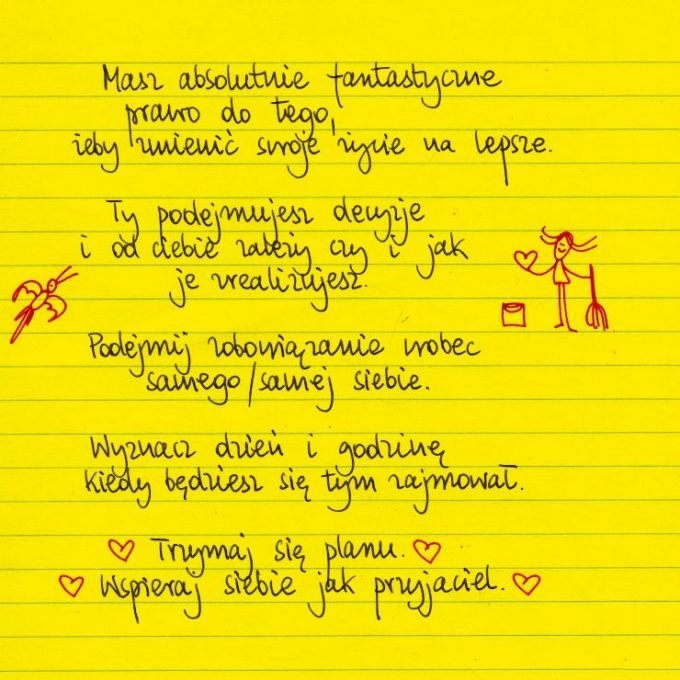 Masz absolutnie fantastyczne
prawo do tego,
żeby zmienić swoje życie na lepsze.
Ty podejmujesz decyzje
i od ciebie zależy czy i jak
je zrealizujesz.
Podejmij zobowiązanie wobec
samego/samej siebie.
Wyznacz dzień i godzinę
kiedy będziesz się tym zajmował.
Trzymaj się planu.
Wspieraj siebie jak przyjaciel.